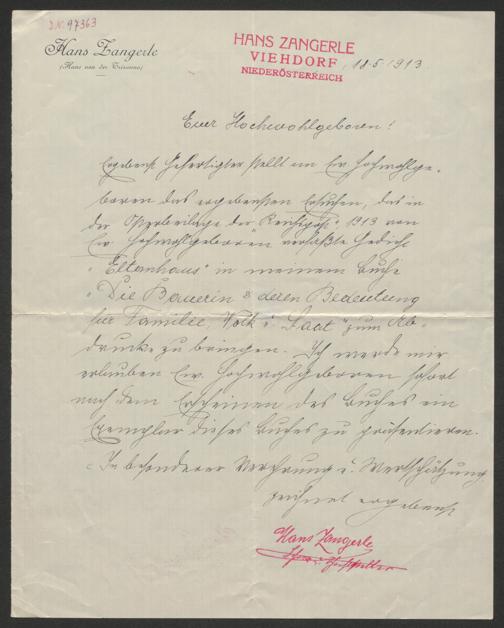 J.N. 97363
Hans Zangerle
(Hans von der Trisanna)
HANS ZANGERLE
VIEHDORF
NIEDERÖSTERREICH
18.5.1913
Euer Hochwohlgeboren!
Ergebenst Gefertigter stellt an Ew. Hochwohlge-
boren das ergebenste Ersuchen, das in
der Osterbeilage der „Reichspost" 1913 von
Ew. Hochwohlgeboren verfaßte Gedicht
„Elternhaus" in meinem Buche
„Die Bäuerin & deren Bedeutung
für Familie, Volk u. Staat" zum Ab-
drucke zu bringen. Ich werde mir
erlauben Ew. Hochwohlgeboren sofort
nach dem Erscheinen des Buches ein
Exemplar dieses Buches zu präsentieren.
In besonderer Verehrung u. Wertschätzung
zeichnet ergebenst
Hans Zangerle